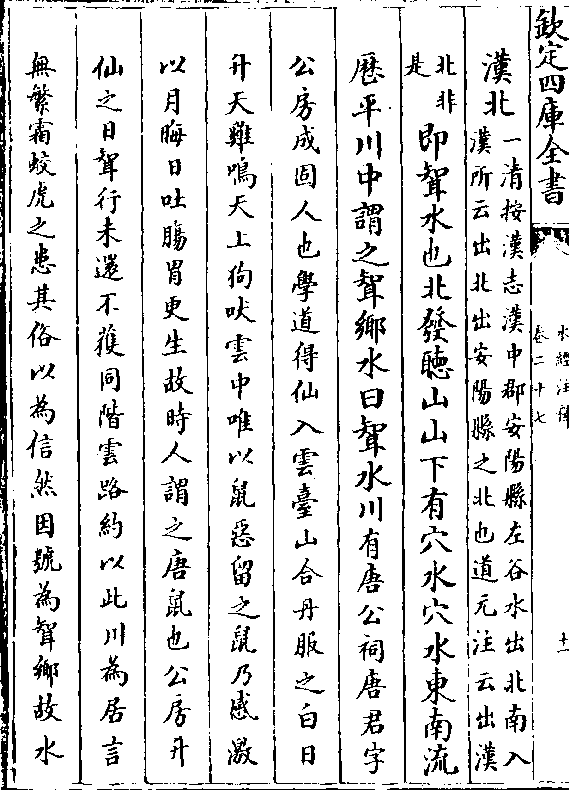 欽定四庫全書
水經注釋
卷二十七
十一
漢北一清按漢志漢中郡安陽縣左谷水出北南入
漢所云出北出安陽縣之北也道元注云出漢
北非
是即聟水也北發聴山山下有穴水穴水東南流
歴平川中謂之聟鄉水曰聟水川有唐公祠唐君字
公房成固人也學道得仙入雲臺山合丹服之白日
升天雞鳴天上狗吠雲中唯以鼠惡留之鼠乃感激
以月晦日吐腸胃更生故時人謂之唐鼠也公房升
仙之日聟行未還不獲同階雲路約以此川為居言
無繁霜蛟虎之患其俗以為信然因號為聟鄉故水